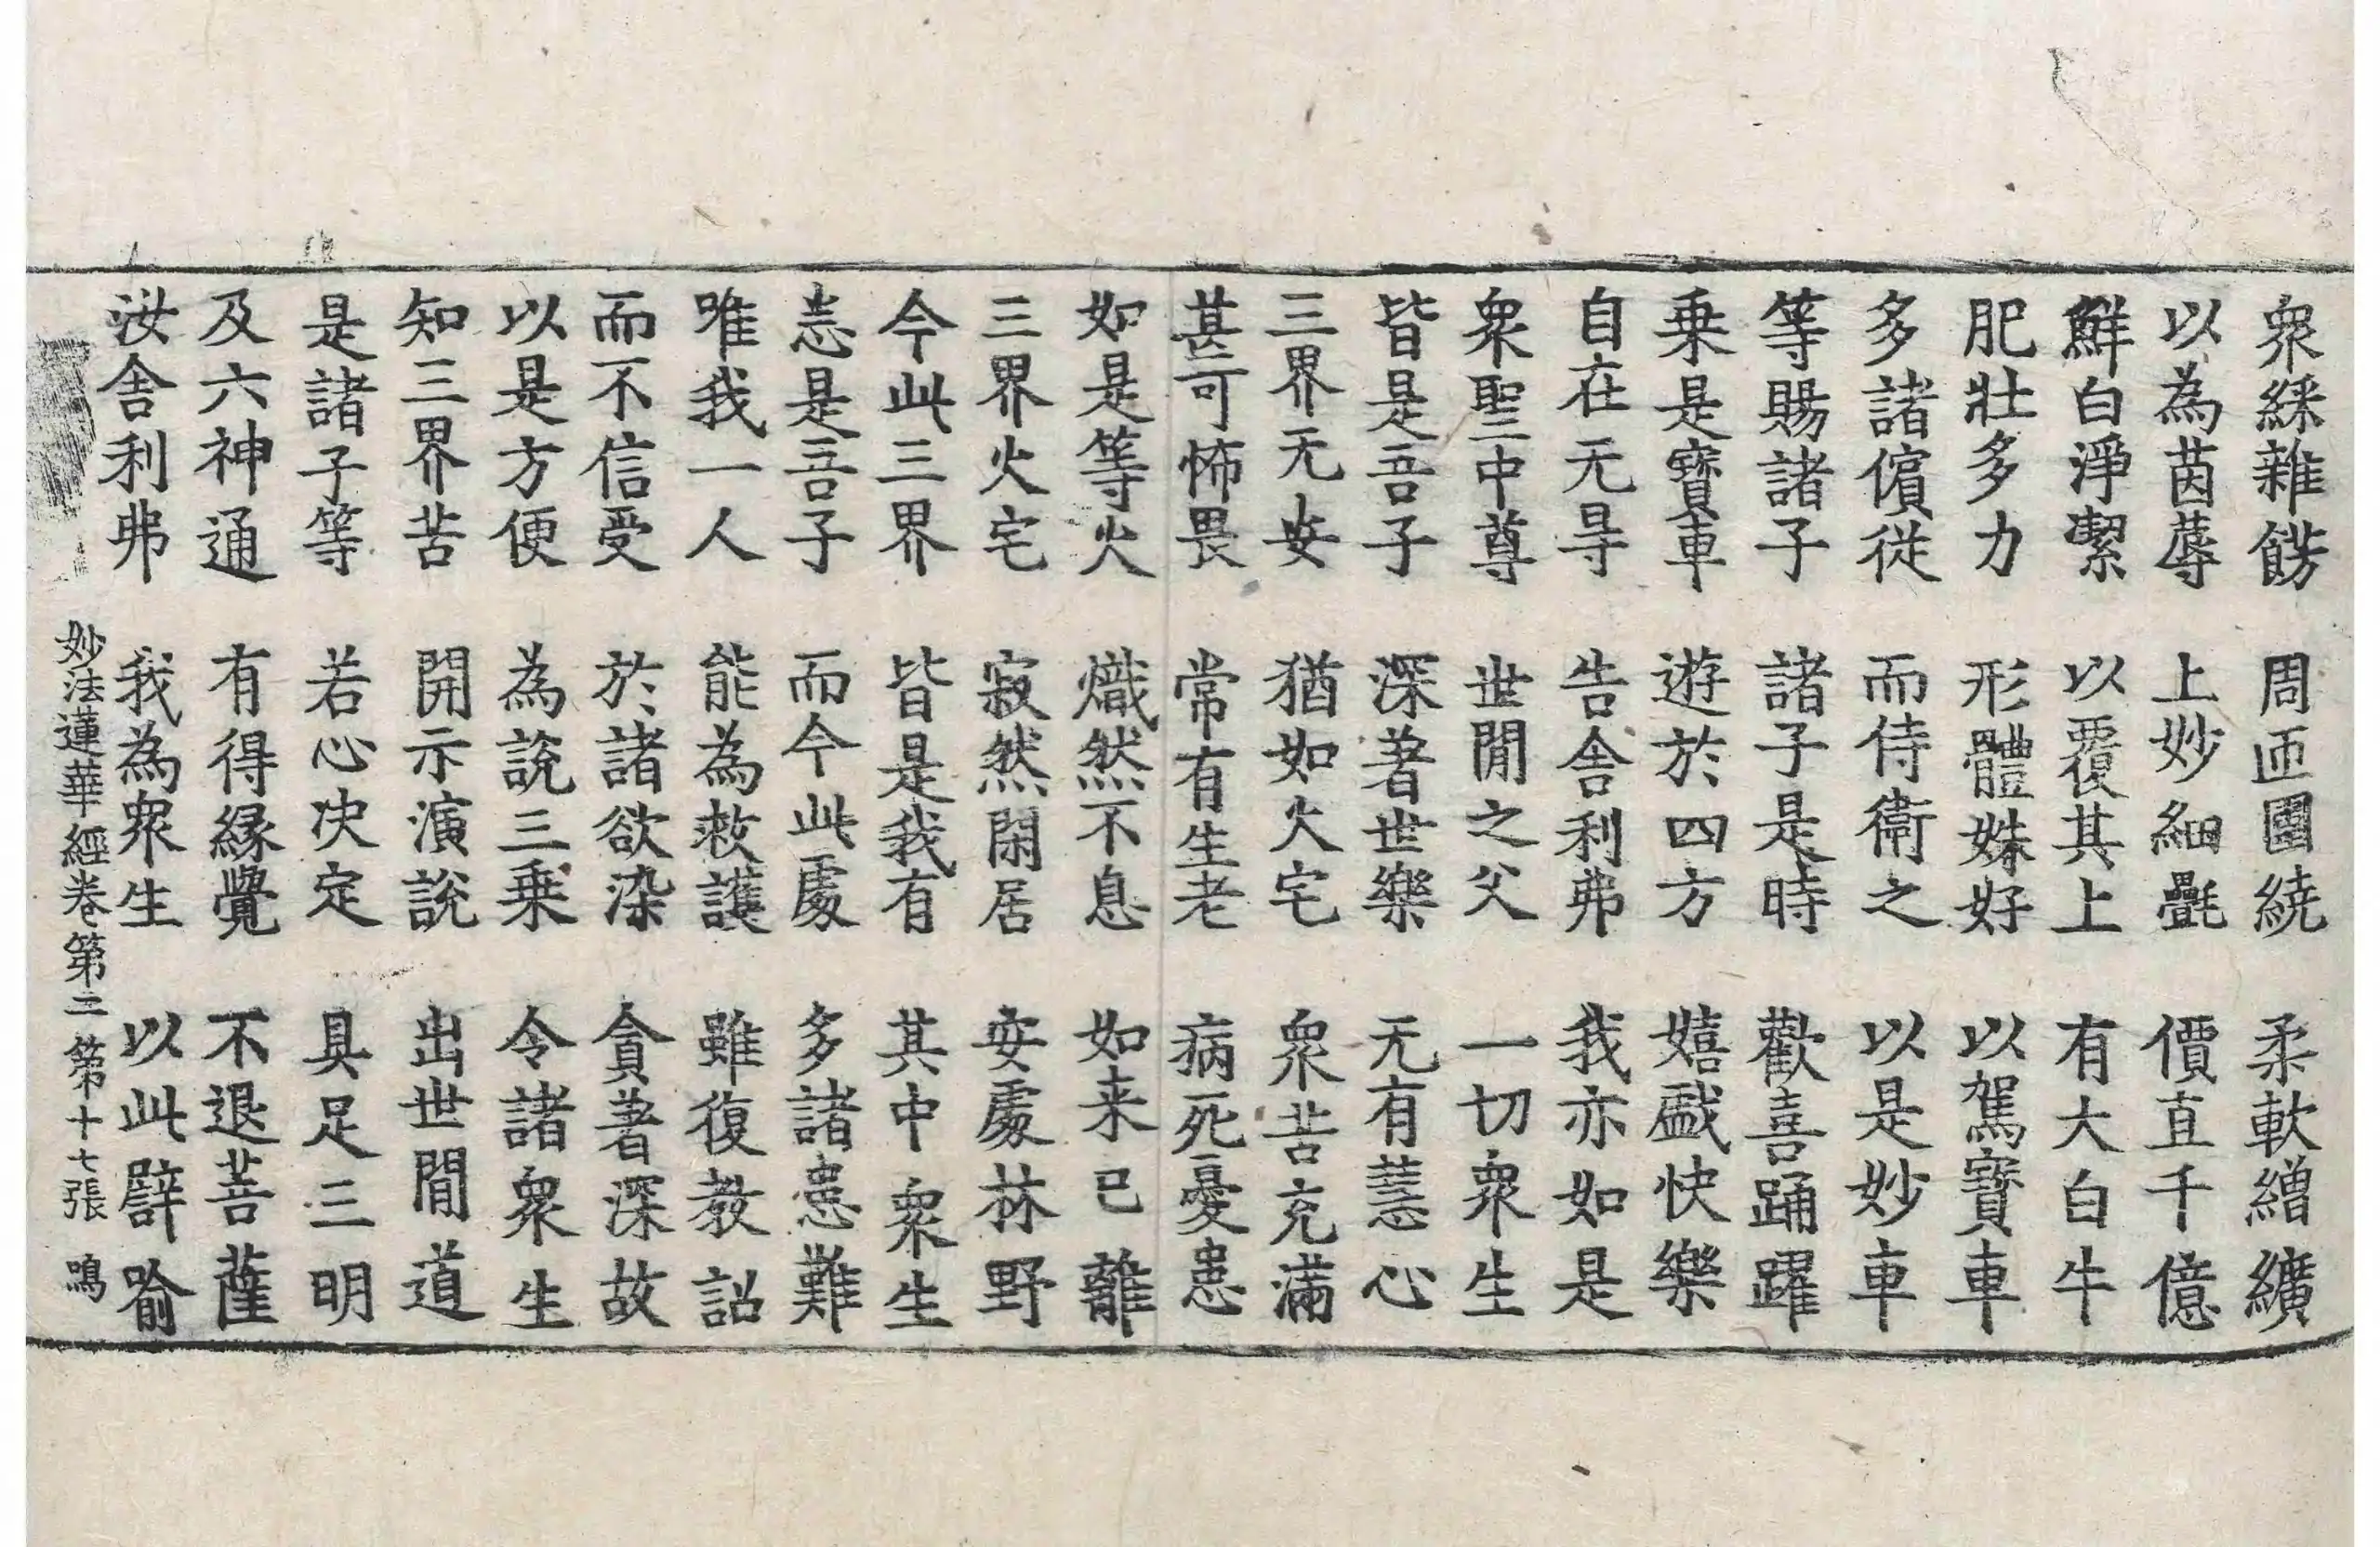 衆綵雜餝 周匝圍繞 柔軟繒纊
以為茵蓐 上妙細㲲 價直千億
鮮白淨潔 以覆其上 有大白牛
肥壯多力 形體姝好 以駕寶車
多諸儐從 而侍衛之 以是妙車
等賜諸子 諸子是時 歡喜踊躍
乗是寶車 遊於四方 嬉戲快樂
自在无㝵 告舍利弗 我亦如是
衆聖中尊 世閒之父 一切衆生
皆是吾子 深著世樂 无有慧心
三界无安 猶如火宅 衆苦充滿
甚可怖畏 常有生老 病死憂患
如是等火 熾然不息 如来已離
三界火宅 寂然閑居 安處林野
今此三界 皆是我有 其中衆生
悉是吾子 而今此處 多諸患難
唯我一人 能為救護 雖復教詔
而不信受 於諸欲染 貪著深故
以是方便 為說三乗 令諸衆生
知三界苦 開示演說 出世閒道
是諸子等 若心决定 具足三明
及六神通 有得緣覺 不退菩薩
汝舍利弗 我為衆生 以此譬喻
妙法蓮華經卷第二 第十七張 鳴